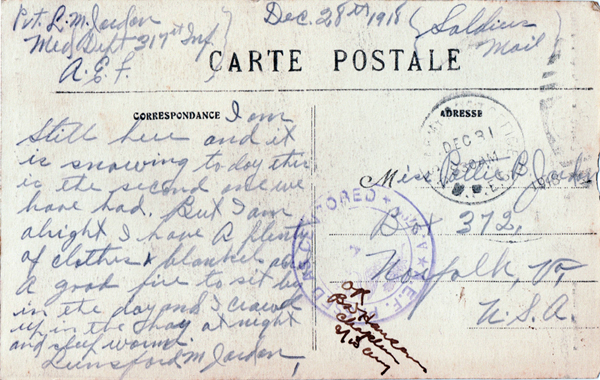 Pvt. L. M. Jordan
Med Dept 317th Inf.
A. E. F.
Dec. 28th 1918
Soldiers
Mail
CARTE POSTALE
CORRESPONDANCE
ADRESSE
I am
still here and it
is snowing to day this
is the second one we
have had. But I am
alright I have a plenty
of clothes & blankets and
a good fire to sit by
in the day and I crawl
up in the hay at night
and sleep warm.
Lunsford M Jordan
DEC 31
1918
Miss Pattie B. Jordan
Box 372,
Norfolk, Va,
U.S.A.
CENSORED
A.E.F.
OK
Chaplain